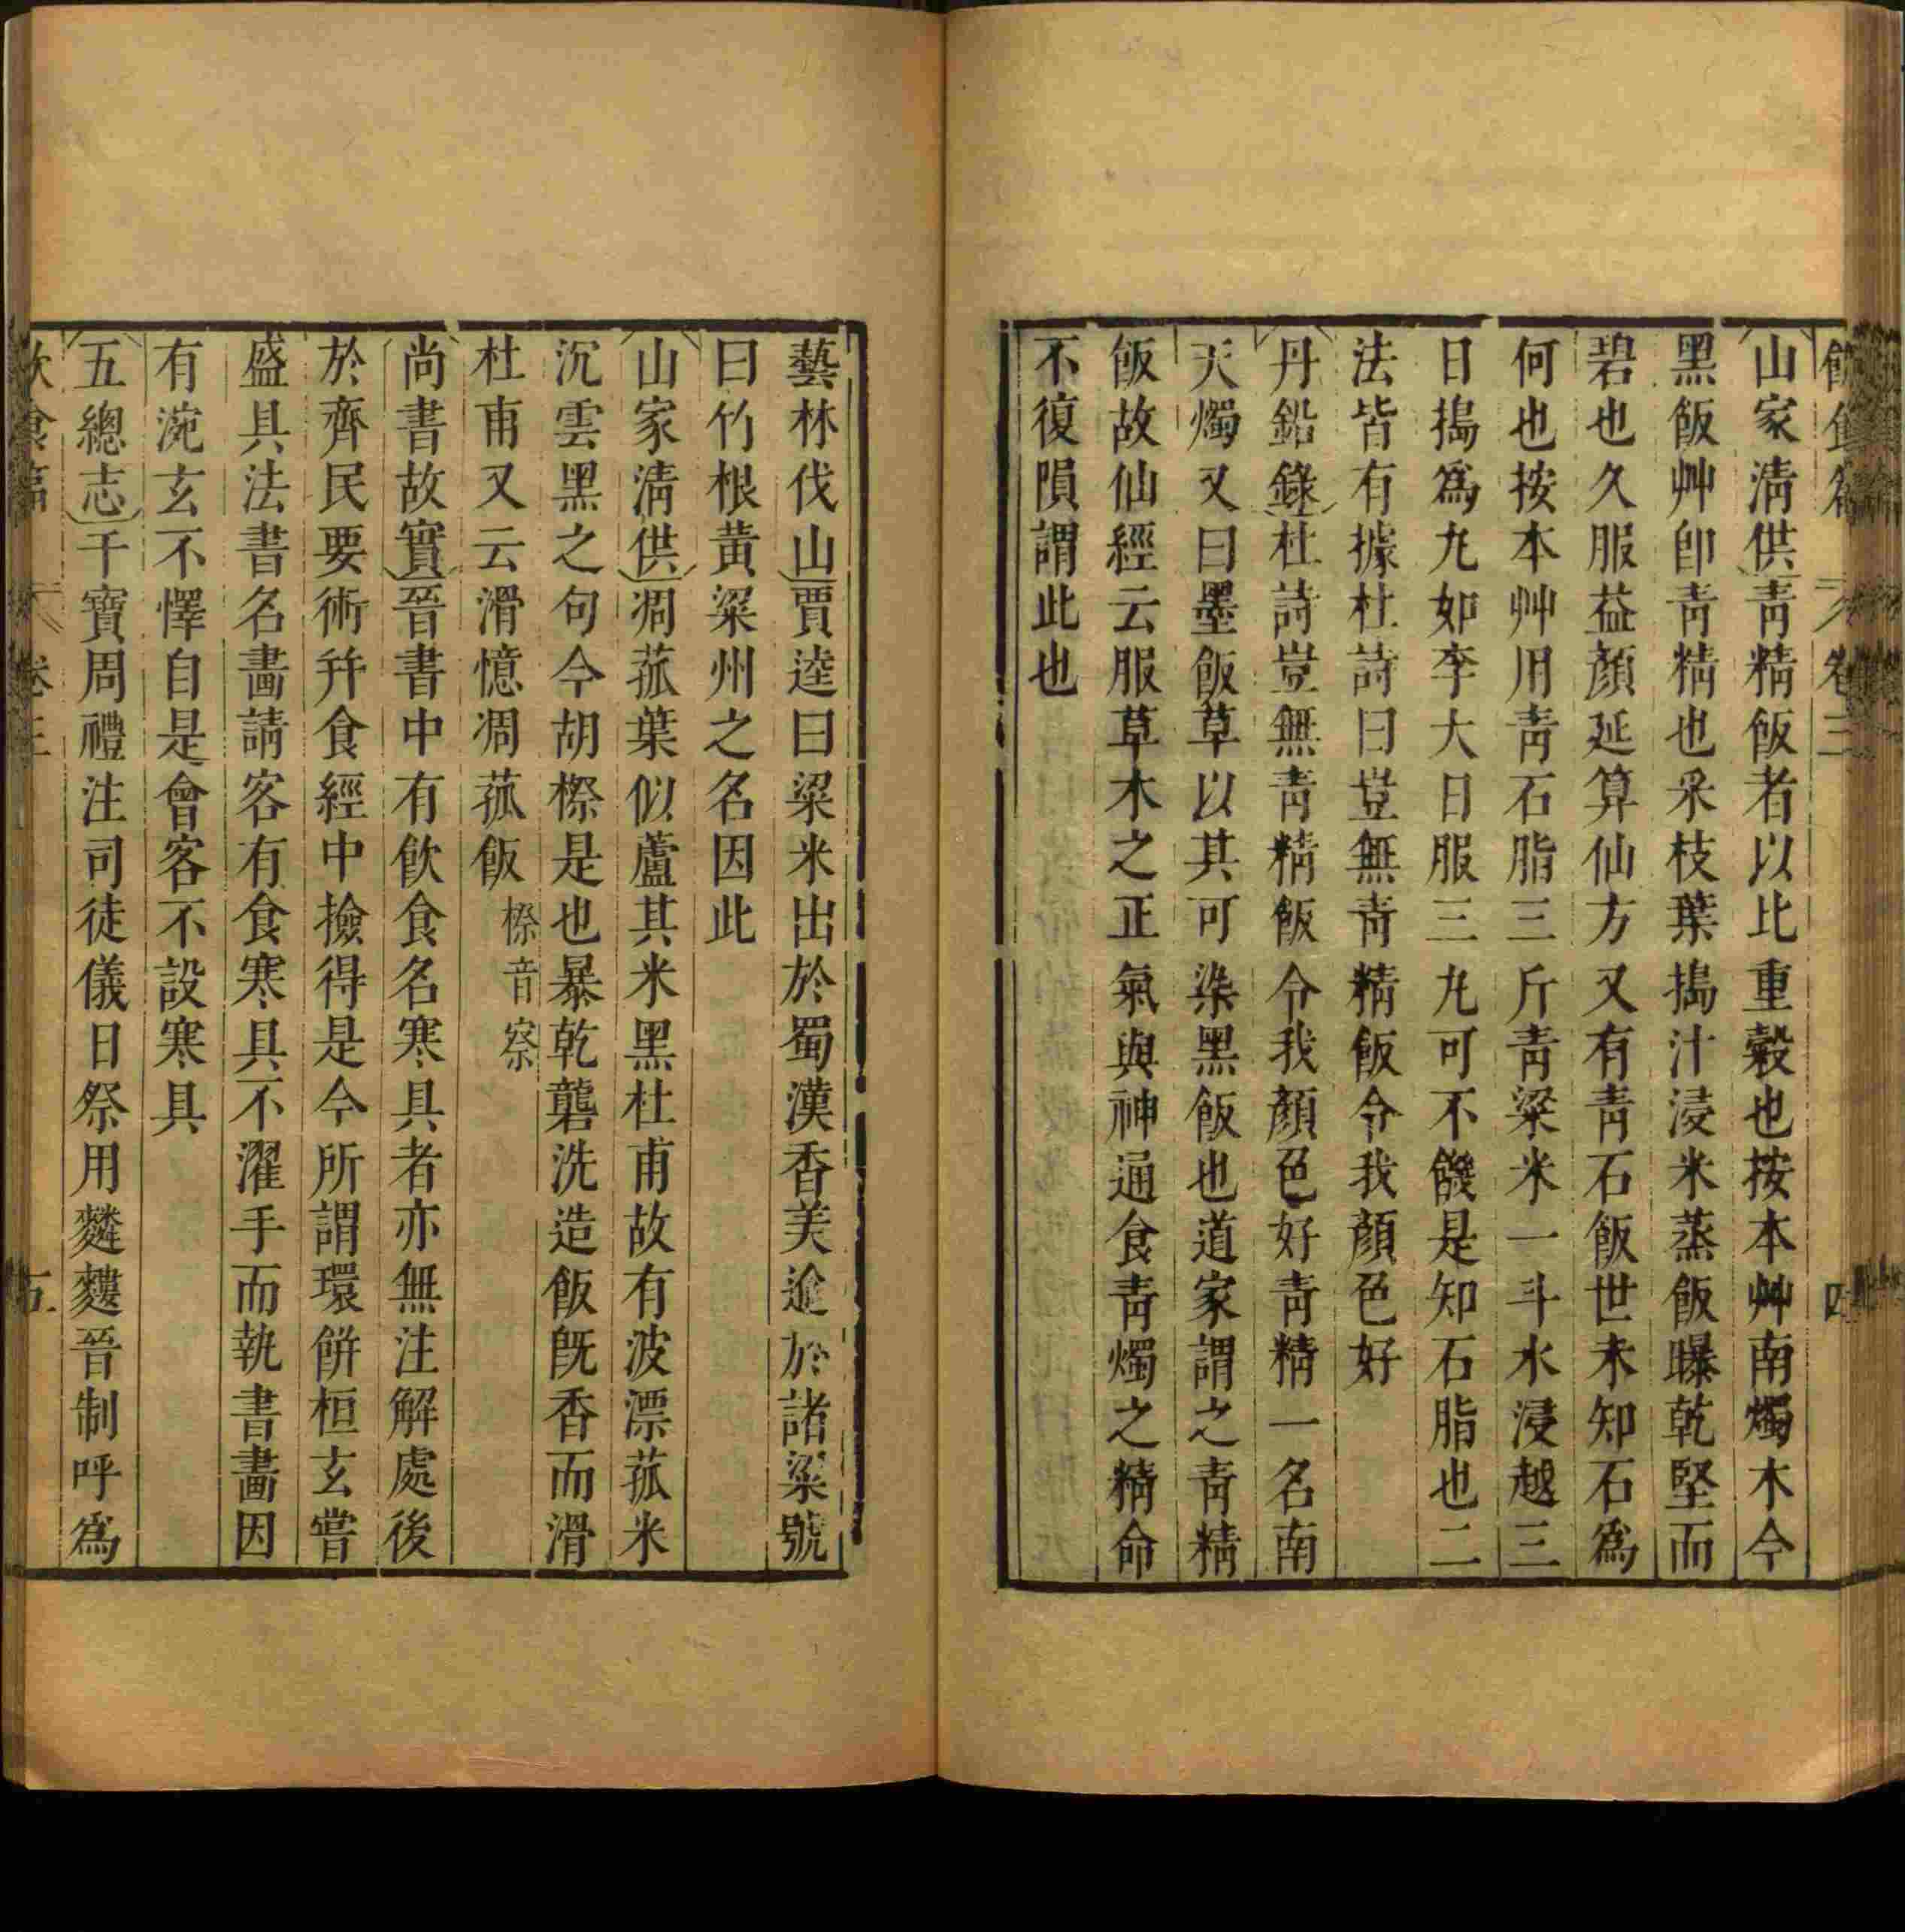 山家淸供靑精飯者以比重榖也按本艸南燭木今
黑飯艸卽靑精也采枝葉搗汁浸米蒸飯曝乾堅而
碧也久服益顏延算仙方又有靑石飯世未知石爲
何也按本艸用靑石脂三斤靑粱米一斗水浸越三
日搗爲九如李大日服三九可不饑是知石脂也二
法皆有據杜詩曰豈無靑精飯令我顏色好
丹鉛錄杜詩豈無靑精飯令我顏色好靑精一名南
天燭又曰墨飯草以其可染黑飯也道家謂之靑精
飯故仙經云服草木之正氣與神通食靑燭之精命
不復隕謂此也
藝林伐山賈逵曰粱米出於蜀漢香美逾於諸粱號
曰竹根黃粱州之名因此
山家淸供凋菰葉似蘆其米黑杜甫故有波漂菰米
沉雲黑之句今胡穄是也暴乾礱洗造飯旣香而滑
杜甫又云滑憶凋菰飯 穄音察
尚書故實晉書中有飮食名寒具者亦無注解處後
於齊民要術幷食經中撿得是今所謂環餠桓玄嘗
盛具法書名畫請客有食寒具不濯手而執書畫因
有涴玄不懌自是會客不設寒具
五總志干寶周禮注司徒儀日祭用䴪䴹晉制呼爲
卷三